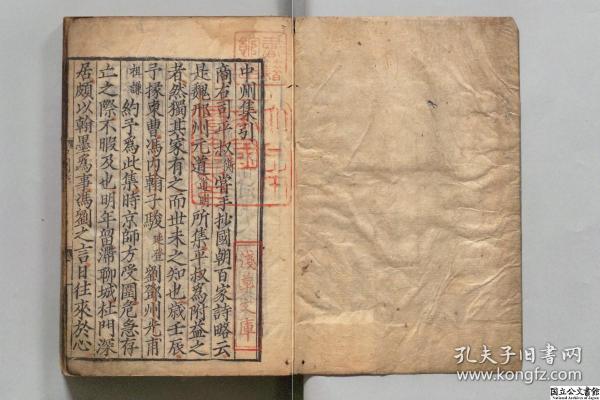 中州集引
商右司平叔衡嘗手抄國朝百家詩略云
是魏邢州元道道明所集平叔為附益之
者然獨其家有之而世未之知也歲壬辰
予掾東曹馮内翰子駿延登劉鄧州光甫
祖謙約予爲此集時京師方受圍危急存
亡之際不暇及也明年留滯聊城杜門深
居頗以翰墨爲事馮劉之言日往來於心
淺草文庫
孔夫子旧书网
www.kongfz.com
国立公文書館
National Archives of Japan